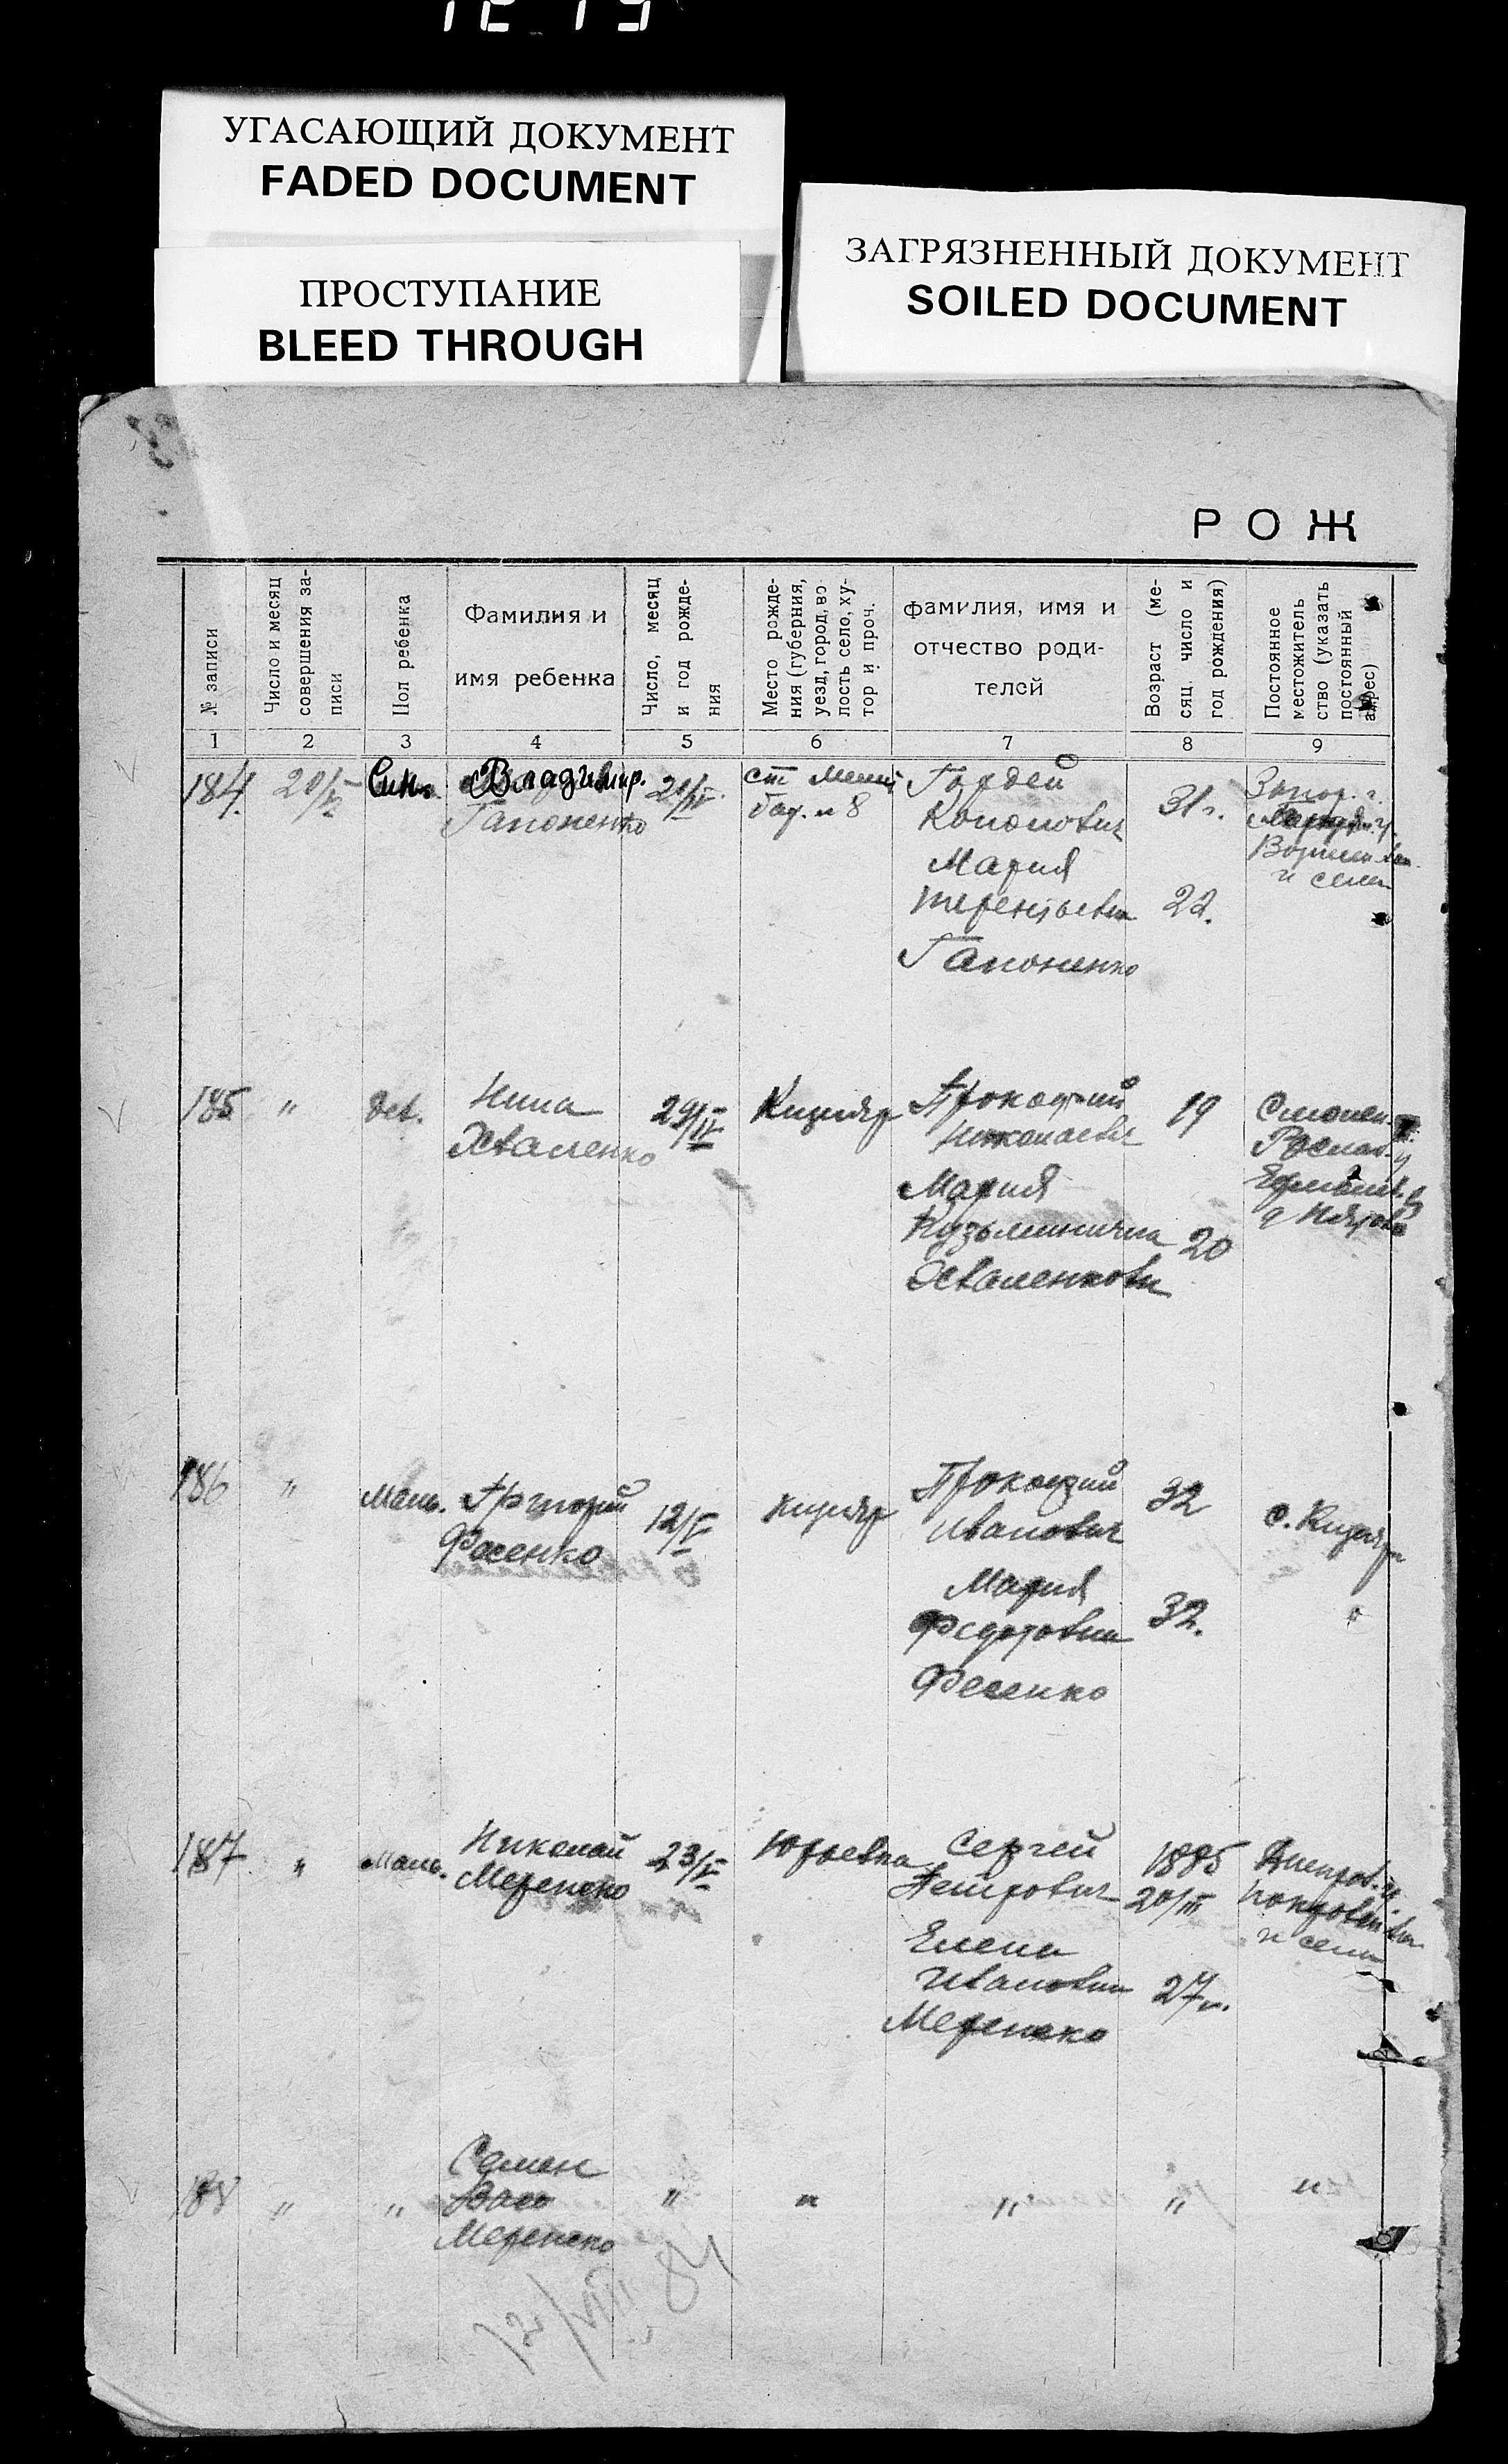 УГАСАЮЩИЙ ДОКУМЕНТ
FADED DOCUMENT
ПРОСТУПАНИЕ
BLEED THROUGH
ЗАГРЯЗНЕННЫЙ ДОКУМЕНТ
SOILED DOCUMENT
РОЖ
№ записи
Число и месяц
совершения за-
писи
Пол ребенка
Фамилия и
имя ребенка
Число, месяц
и год рожде-
ния
Место рожде-
ния (губерния,
уезд, город, во
лость село, ху-
тор и проч.
фамилия, имя и
отчество роди-
телей
Возраст (ме-
сяц число и
год рождения)
Постоянное
местожитель
ство (указать
постоянный
адрес)
1 2 3 4 5 6 7 8 9
184.
Владимир.
Гапоненко
ст
8
Гордей
Кононович
Мария
Терентьевна
Гапоненко
31 г.
22.
185
"
дев.
Нина
Хваленко
29/IV
Кицияр
Прокофий
Николаевич
Мария
Кузьминична
Хваленкова
19
20
186
"
Маль.
Григорий
Фесенко
12/V
Кицияр
Прокофий
Иванович
Мария
Федоровна
Фесенко
32
32.
с. Кицияр
187
"
Маль.
Николай
Меренеко
23/V
Юрьевка
Сергей
Петрович
Елена
Ивановна
Меренеко
1885
20/III
27 г.
188
"
"
Семен
Меренеко
"
"
"
"
"
12/VIII 84